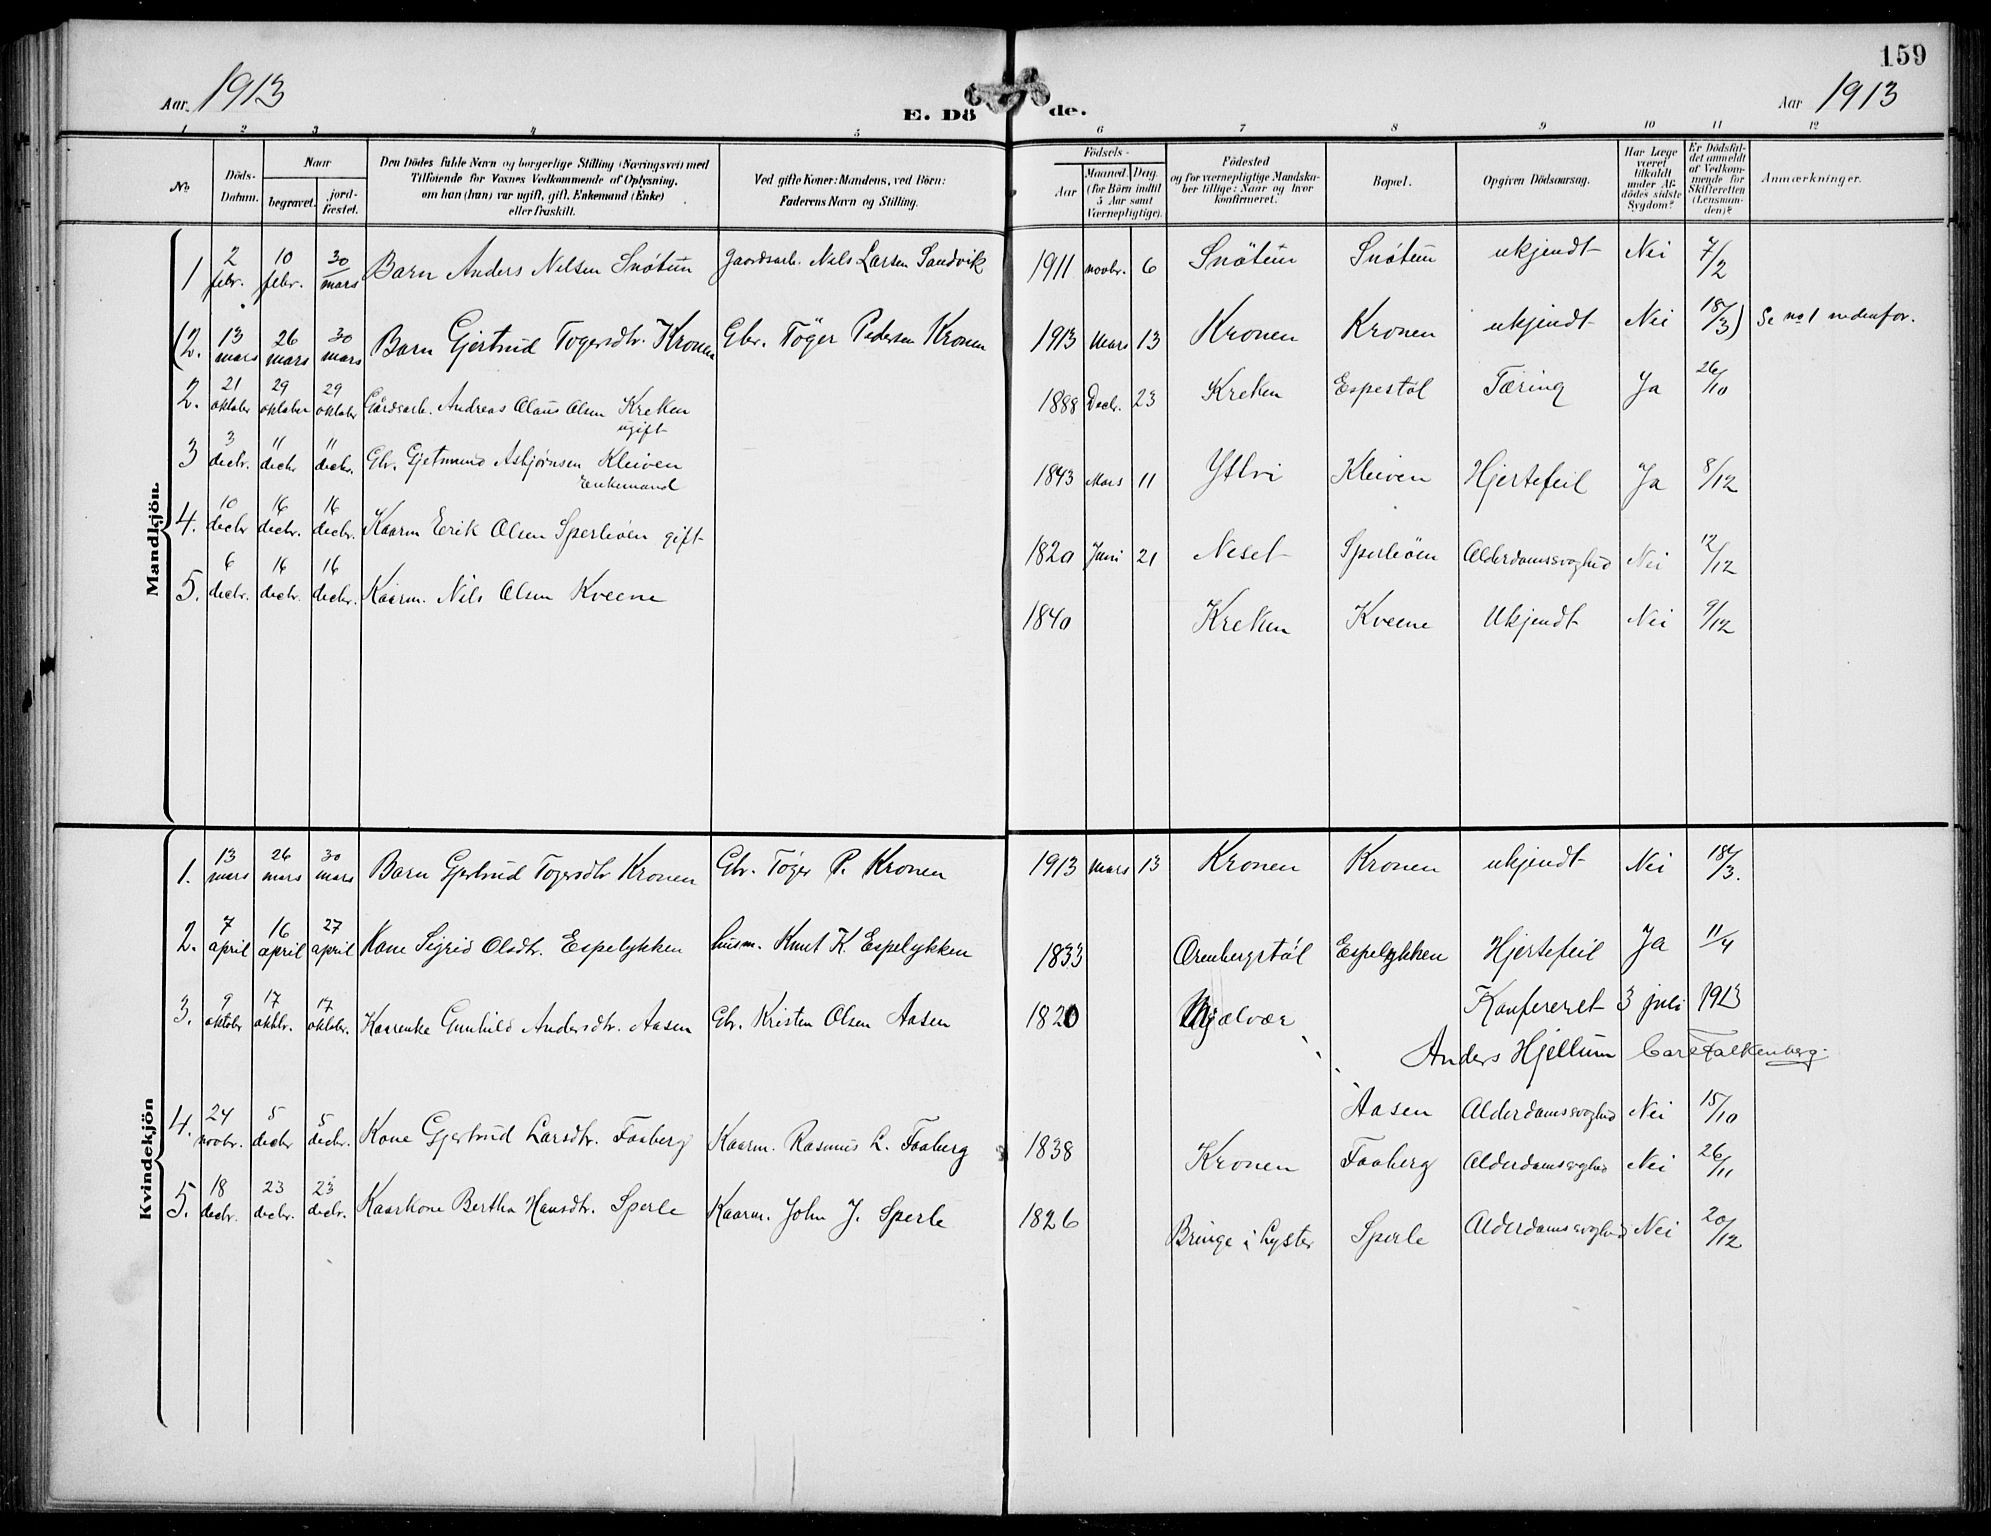 159
Aar 1913
E. Dö de.
Aar 1913
1 2 3 4 5 6 7 8 9 10 11 12
No
Döds-Datum.
Naar
begravet. jord-fæstet.
Den Dödes fulde Navn og borgerlige Stilling (Næringsvei) med
Tilföiende for Voxnes Vedkommende af Oplysning,
om han (hun) var ugift, gift, Enkemand (Enke)
eller fraskilt.
Ved gifte Koner: Mandens, ved Börn:
Faderens Navn og Stilling.
Födsels-
Aar Maaned. Dag.
(for Börn indtil
5 Aar samt
Værnepligtige).
Födested
og for værnepligtige Mandska-
ber tillige: Naar og hvor
konfirmeret.
Bopæl.
Opgiven Dödsaarsag.
Har Læge
været
tilkaldt
under Af-
dödes sidste
Sygdom?
Er Dödsfal-
det anmeldt
af Vedkom-
mende for
Skifteretten
(Lensman-
den)?
Anmærkninger.
Mandkjön.
1 2 febr. 10 febr. 30 mars Barn Anders Nilsen Snötun gaardsarb. Nils Larsen Sandvik 1911 novbr. 6 Snötun Snötun ukjendt Nei 7/2
(2. 13 mars 26 mars 30 mars Barn Gjertrud Togersdtr. Kronen Gbr. Töger Pedersen Kronen 1913 Mars 13 Kronen Kronen ukjendt Nei 18/3) Se no 1 nedenfor.
2. 21 oktober 29 oktober 29 oktober Gårdsarb. Andreas Olaus Olsen Kreken ugift 1888 Decbr. 23 Kreken Espestöl Tæring Ja 26/10
3 3 decbr. 11 decbr 11 decbr. Gbr. Gjetmund Asbjørnsen Kleiven Enkemand 1843 Mars 11 Ytlvi Kleiven Hjertefeil Ja 8/12
4. 10 decbr 16 decbr. 16 decbr. Kaarm Erik Olsen Sperleöen gift 1820 Juni 21 Neset Sperleöen Alderdomssvaghed Nei 12/12
5. 6 decbr. 16 decbr. 16 decbr. Kaarm. Nils Olsen Kveene 1840 Kreken Kveene Ukjendt Nei 9/12
Kvindekjön
1. 13 mars 26 mars 30 mars Barn Gjertrud Togersdtr Kronen Gbr. Töger P. Kronen 1913 Mars 13 Kronen Kronen ukjendt Nei 18/3.
2. 7 april 16 april 27 april Kone Sigrid Olsdtr. Espelykken husm. Knut K. Espelykken 1833 Ormbergstöl Espelykken Hjertefeil Ja 11/4
3. 9 oktobr 17 oktbr. 17 oktobr. Kaarenke Gunhild Andersdtr. Aasen Gbr. Kristen Olsen Aasen 1820
Konfereret 3 juli 1913
Anders Hjellum Carl Falkenberg.
Aasen Alderdomssvaghed Nei 15/10
4. 24 novbr. 5 decbr 5 decbr. Kone Gjertrud Larsdtr. Faaberg Kaarm. Rasmus L. Faaberg 1838 Kronen Faaberg Alderdomssvaghed Nei 26/11
5. 18 decbr. 23 decbr. 23 decbr. Kaarkone Bertha Hansdtr. Sperle Kaarm. John J. Sperle 1826 Bringe i Lyster Sperle Alderdomssvaghed Nei 20/12